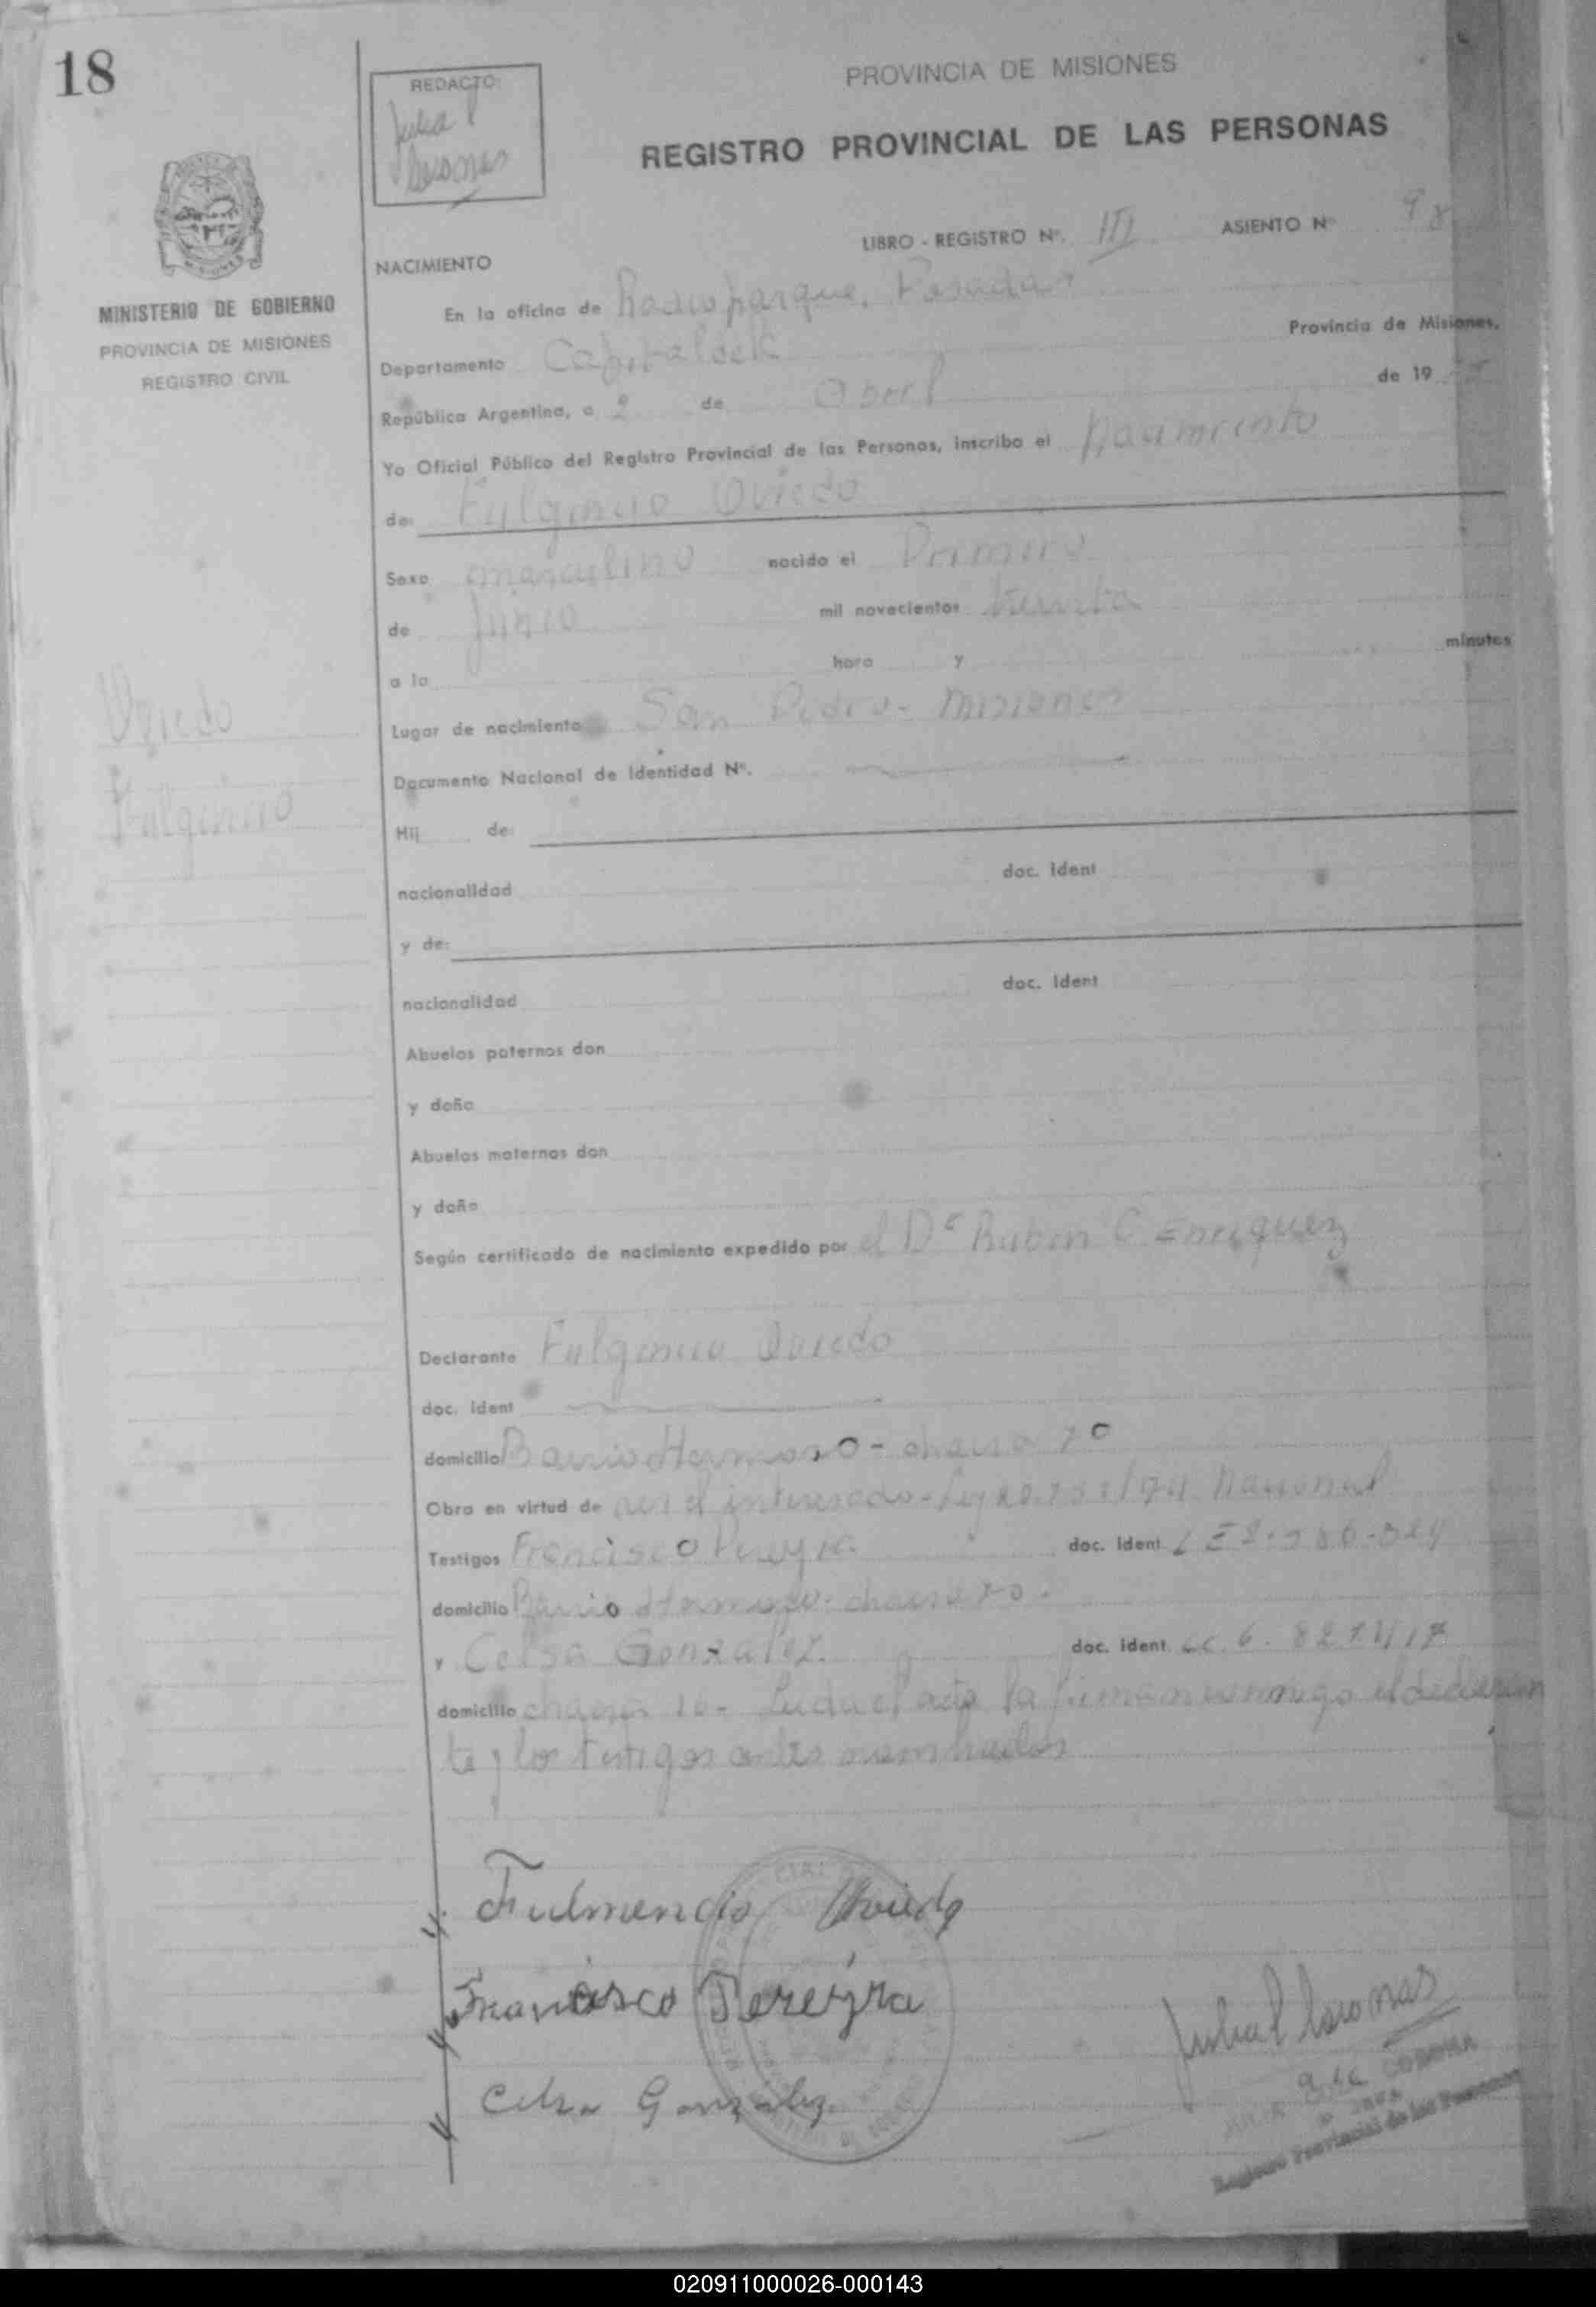 18
REDACTO:
PROVINCIA DE MISIONES
REGISTRO PROVINCIAL DE LAS PERSONAS
LIBRO - REGISTRO Nº. III ASIENTO Nº 98
MINISTERIO DE GOBIERNO
PROVINCIA DE MISIONES
REGISTRO CIVIL
NACIMIENTO
En la oficina de Posadas
Departamento Capital Provincia de Misiones.
República Argentina, a 2 de Abril de 19
Yo Oficial Público del Registro Provincial de las Personas, inscribo el nacimiento
de: Fulgencio Oviedo
Sexo masculino nacido el Primero
de Junio mil novecientos treinta
a la hora y minutos
Lugar de nacimiento San Pedro - Misiones
Oviedo
Fulgencio
Documento Nacional de Identidad Nº.
Hij de:
nacionalidad doc. ident
y de:
nacionalidad doc. ident
Abuelos paternos don
y doña
Abuelos maternos don
y doña
Según certificado de nacimiento expedido por el Dr Ruben C Enriquez
Declarante Fulgencio Oviedo
doc. ident
domicilio Barrio Hermoso - chacra 70
Obra en virtud de ser el interesado - Ley Nacional
Testigos Francisco Pereyra doc. ident
domicilio Barrio Hermoso - chacra 70.
y Celsa Gonzalez. doc. ident
domicilio chacra Leída el acta la firman conmigo el declaran
te y los testigos antes nombrados
Fulmencio Oviedo
Francisco Pereyra
Celsa González.
Registro Provincial de las Personas
020911000026-000143